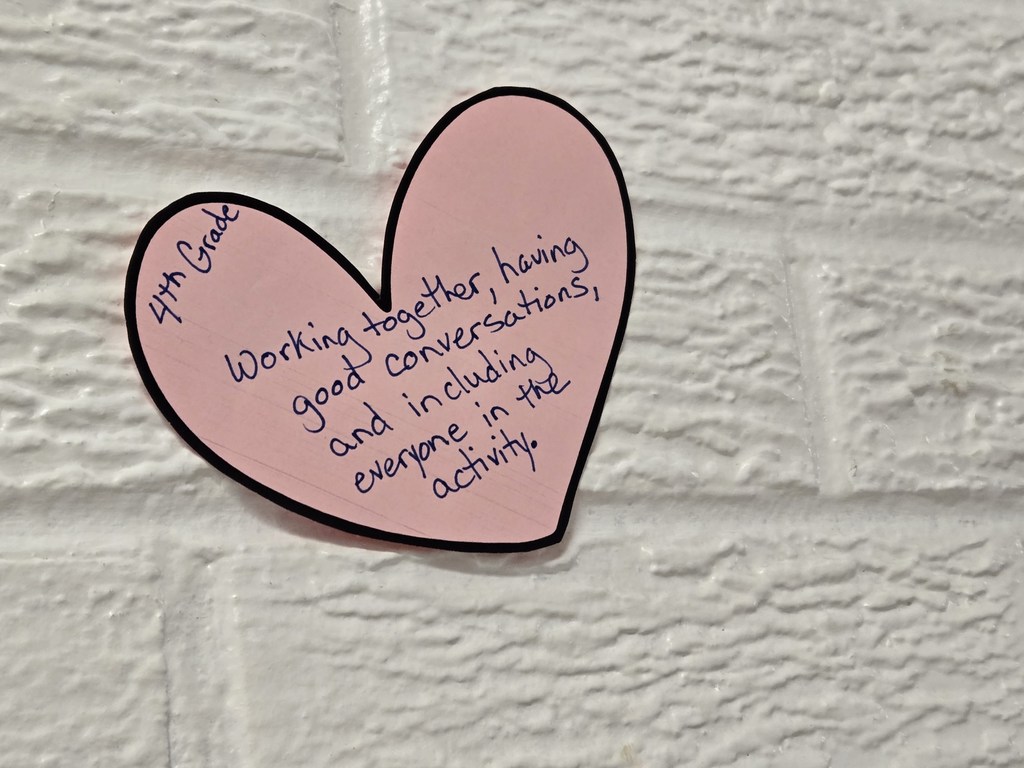 4th Grade
Working together, having
good conversations,
and including
everyone in the
activity.